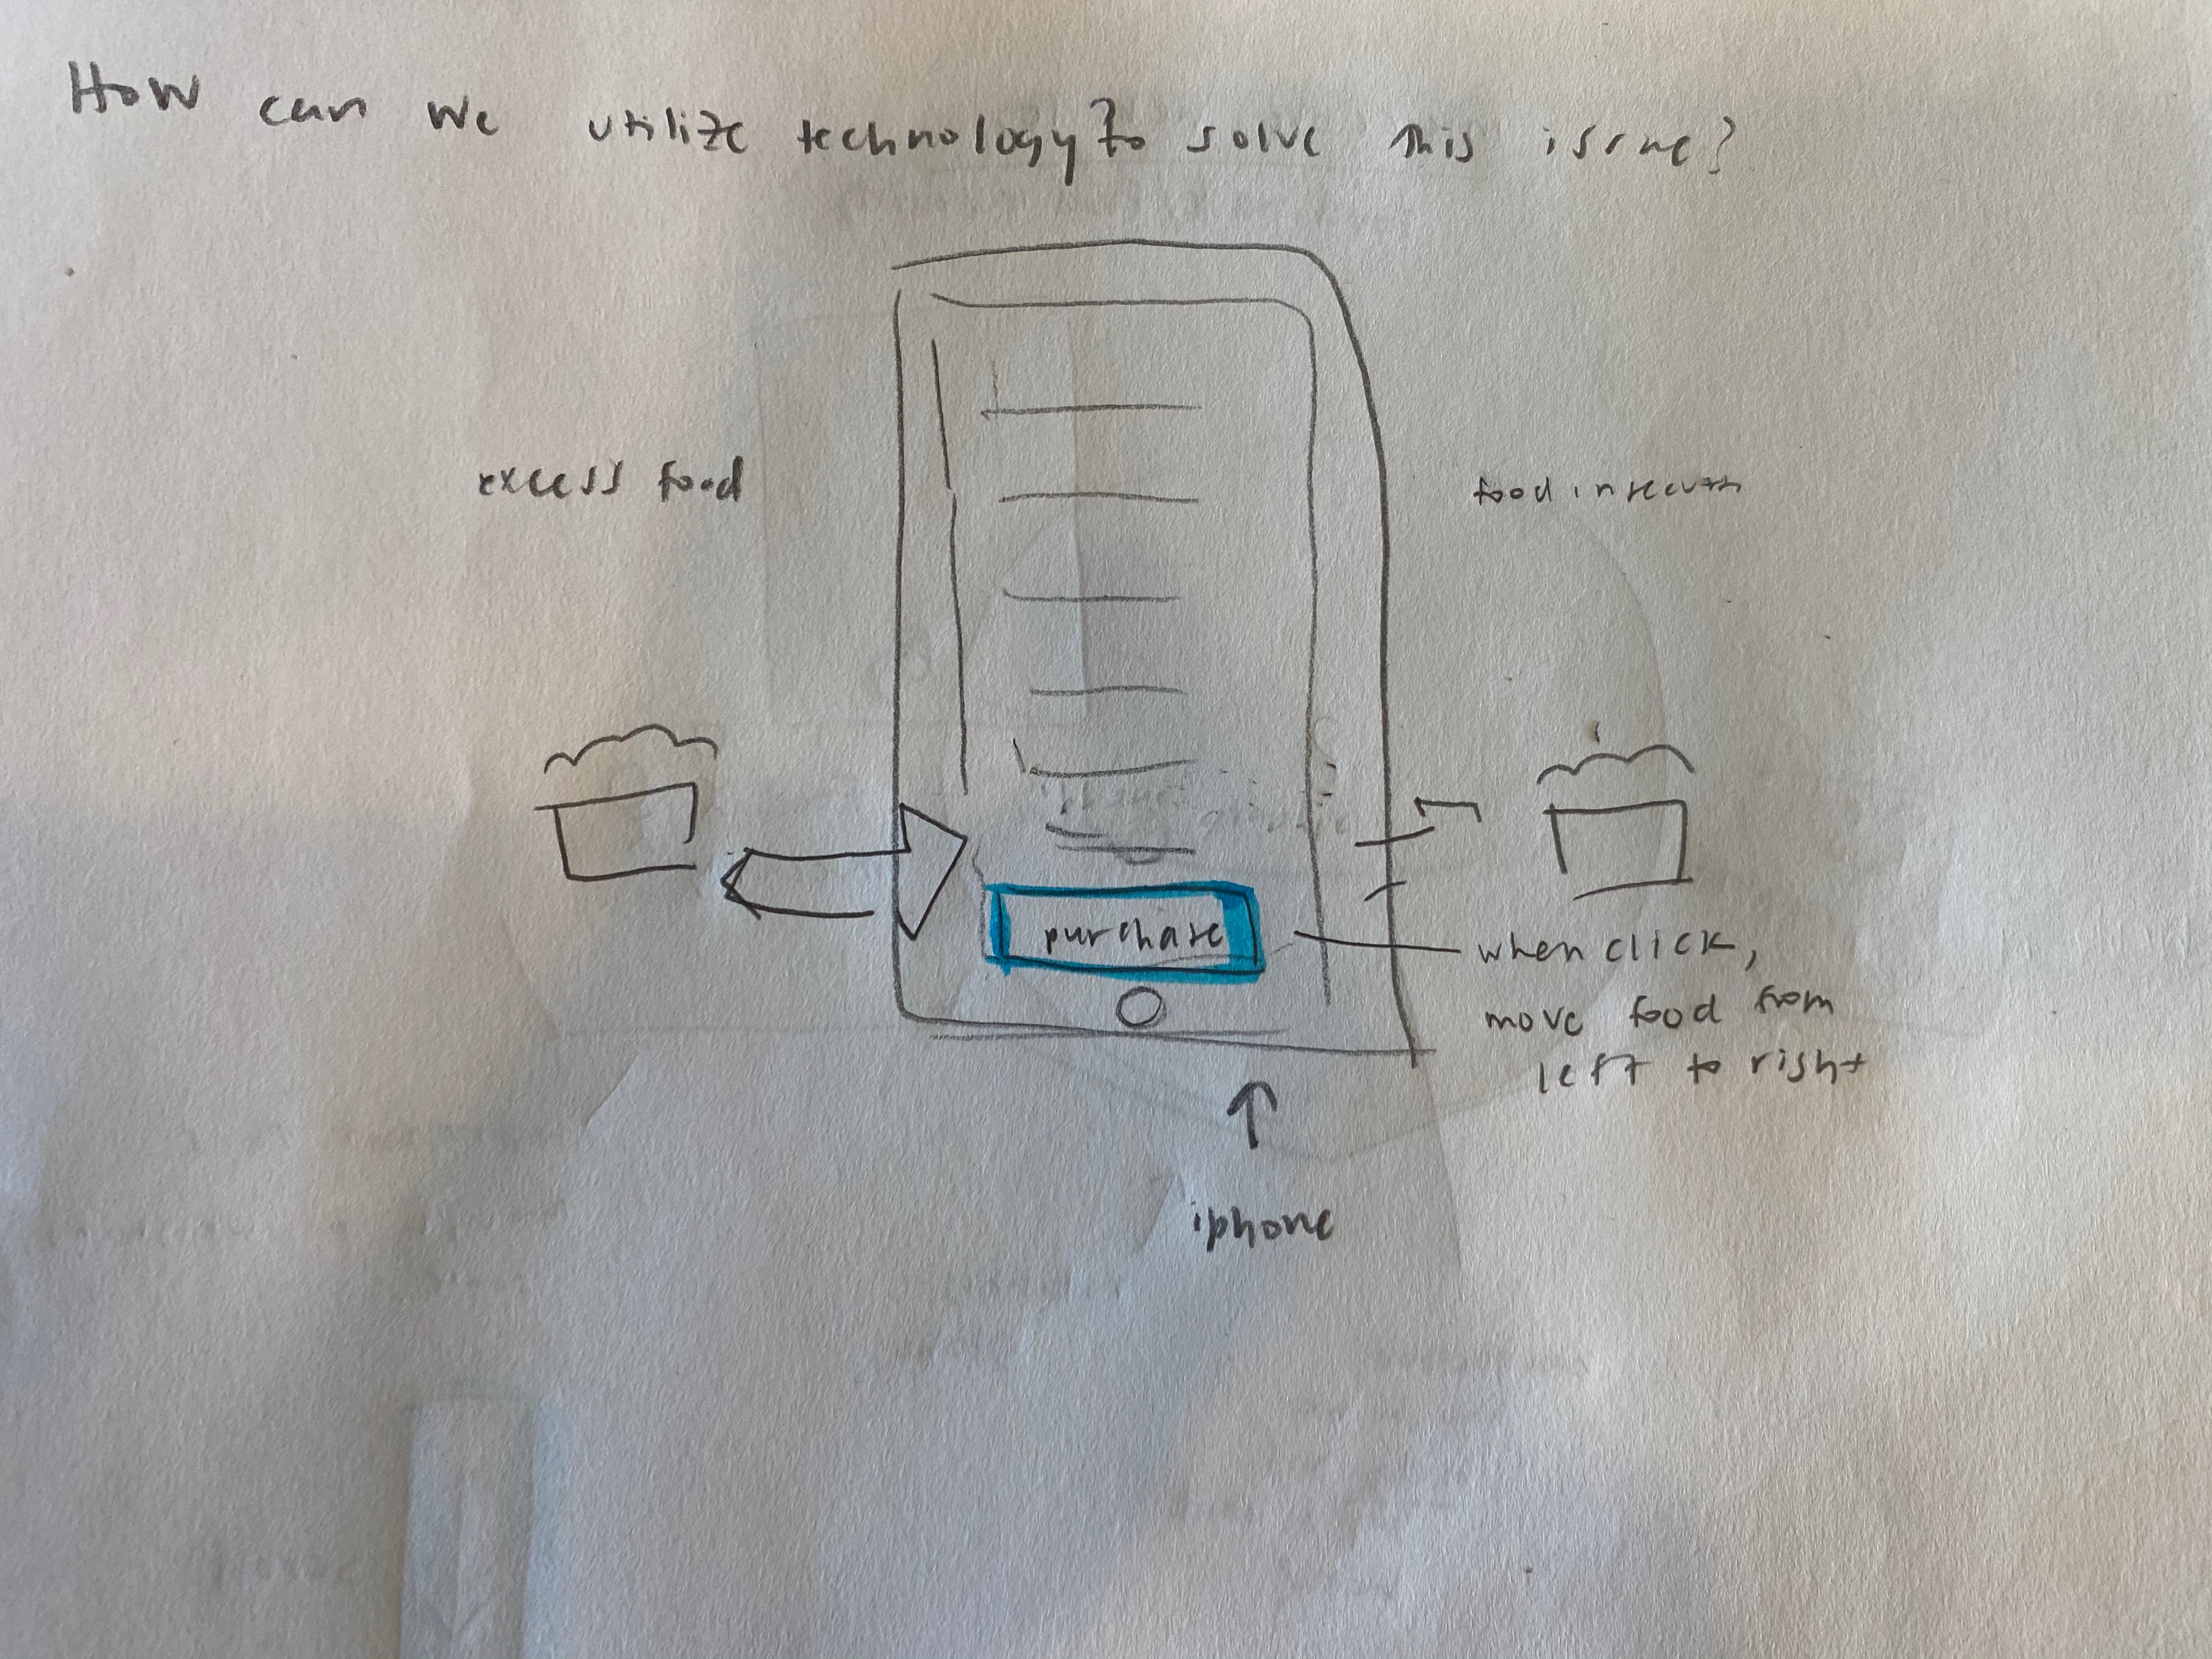 How can we utilize technology to solve this issue?
excess food
food insecurity
purchase
when click,
move food from
left to right
iphone